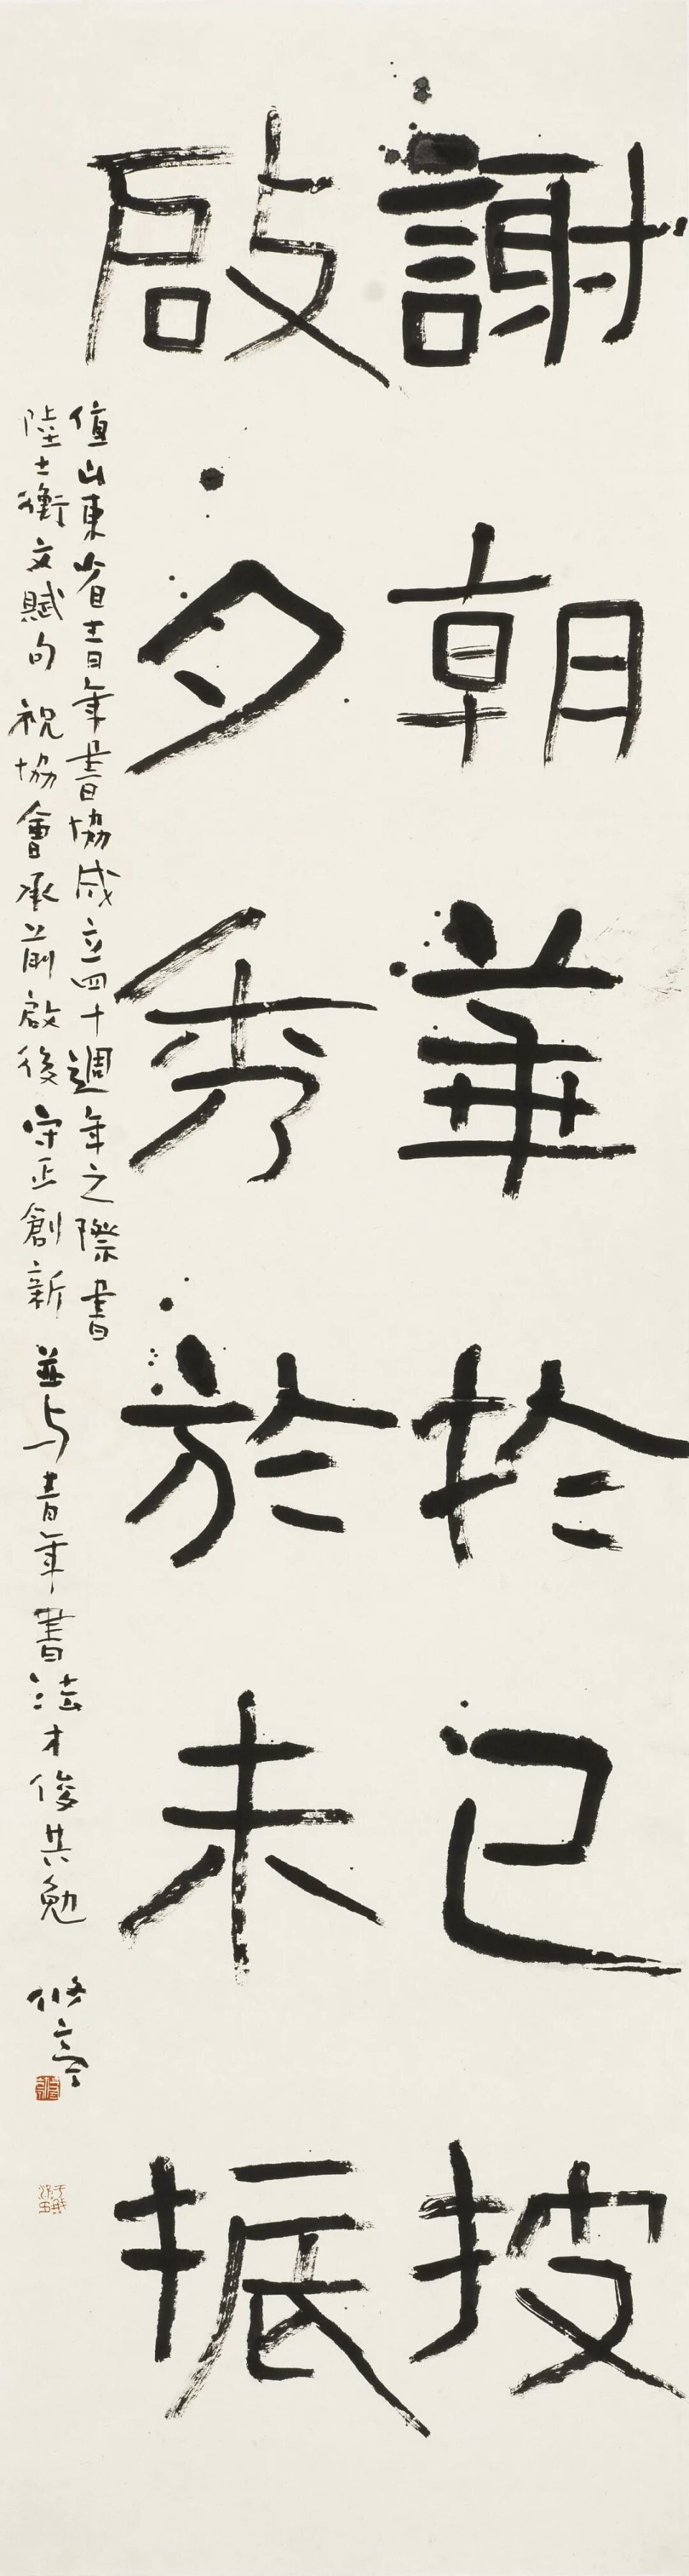 謝朝華於已披
啟夕秀於未振
值山東省青年書協成立四十週年之際書
陸士衡文賦句祝協會承前啟後守正創新並与青年書法才俊共勉